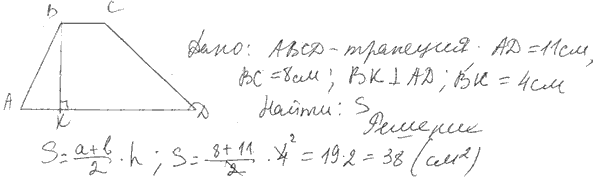 B C
Дано: ABCD – трапеция. AD = 11 см,
BC = 8 см; BK ⊥ AD; BK = 4 см
A K D
Найти: S
Решение
S = (a+b)/2 · h; S = (8+11)/2 · 4² = 19·2 = 38 (см²)